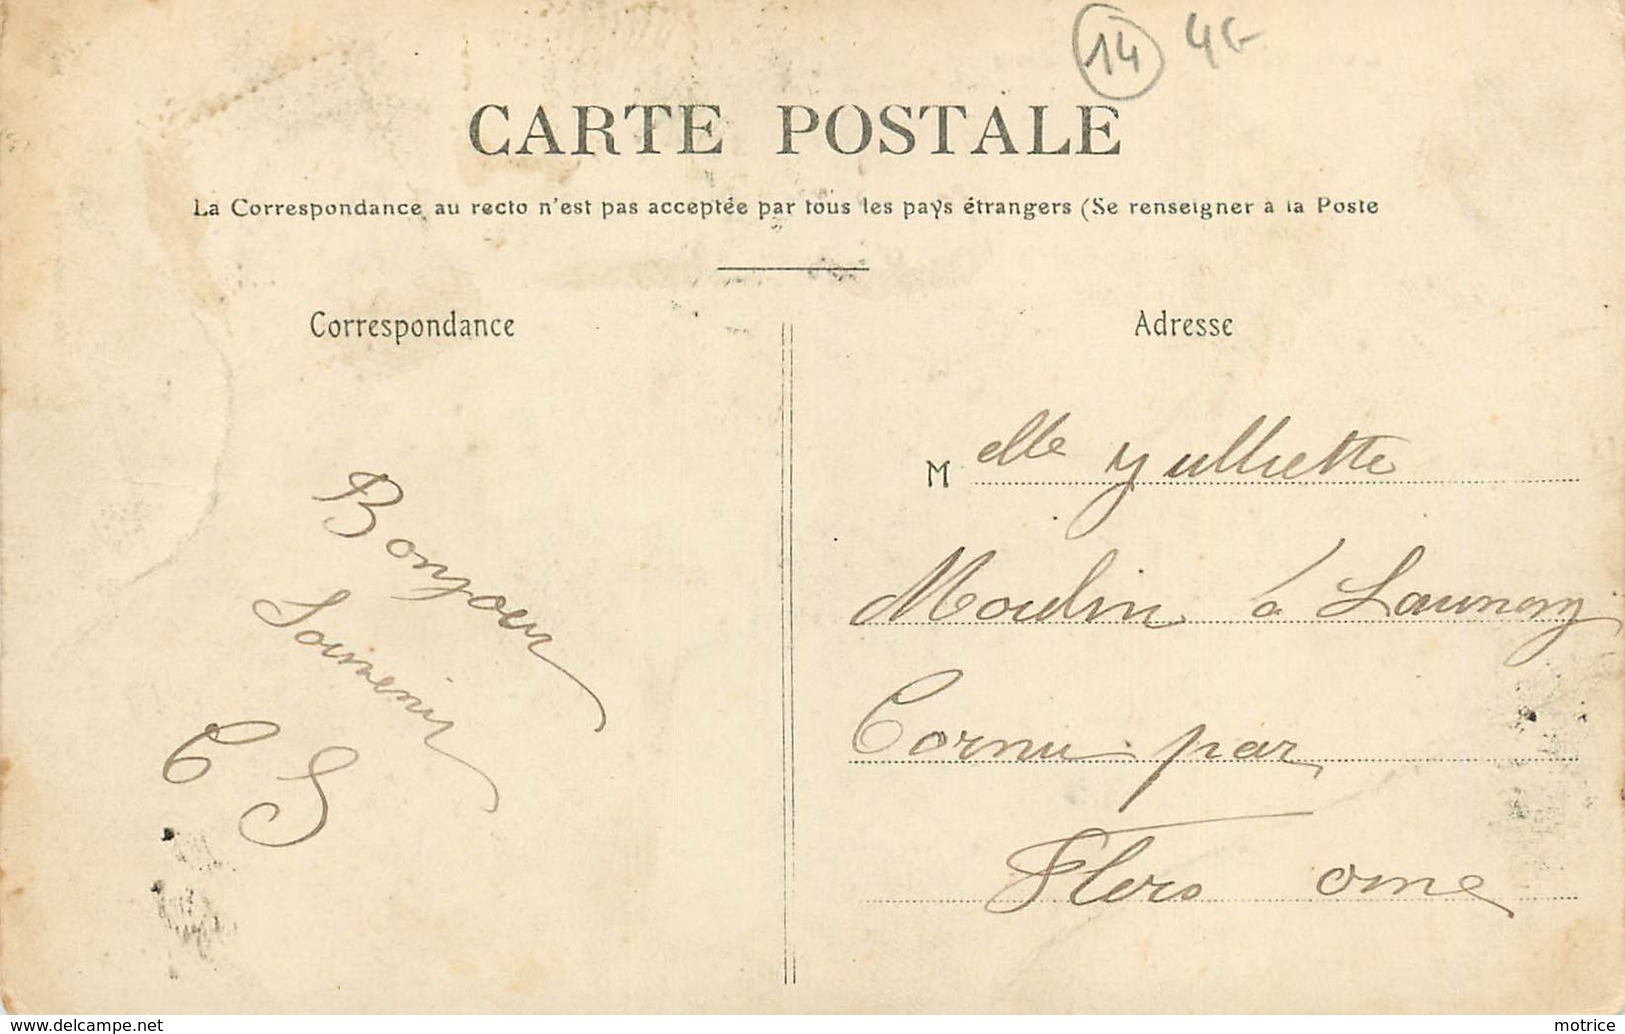 14 4G
CARTE POSTALE
La Correspondance au recto n'est pas acceptée par tous les pays étrangers (Se renseigner à la Poste
Correspondance
Bonjour
Souvenir
C S
Adresse
M elle yulliette
Moulin à Launay
Cornu par
Flers orne
www.delcampe.net
motrice